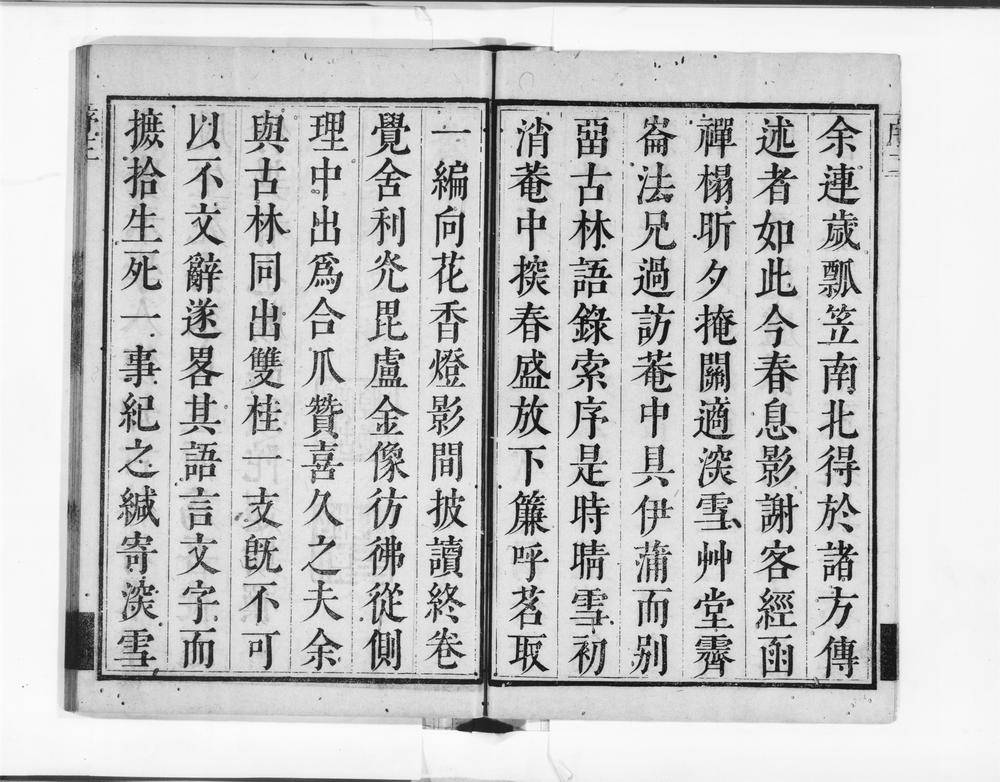 余連歲瓢笠南北得於諸方傳
述者如此今春息影謝客經函
禪榻昕夕掩關適深雪艸堂霽
崙法兄過訪菴中具伊蒲而別
畱古林語錄索序是時晴雪初
消菴中探春盛放下簾呼茗取
一編向花香燈影間披讀終卷
覺舍利光毘盧金像彷彿從側
理中出爲合爪贊喜久之夫余
與古林同出雙桂一支既不可
以不文辭遂畧其語言文字而
摭拾生死一事紀之緘寄深雪